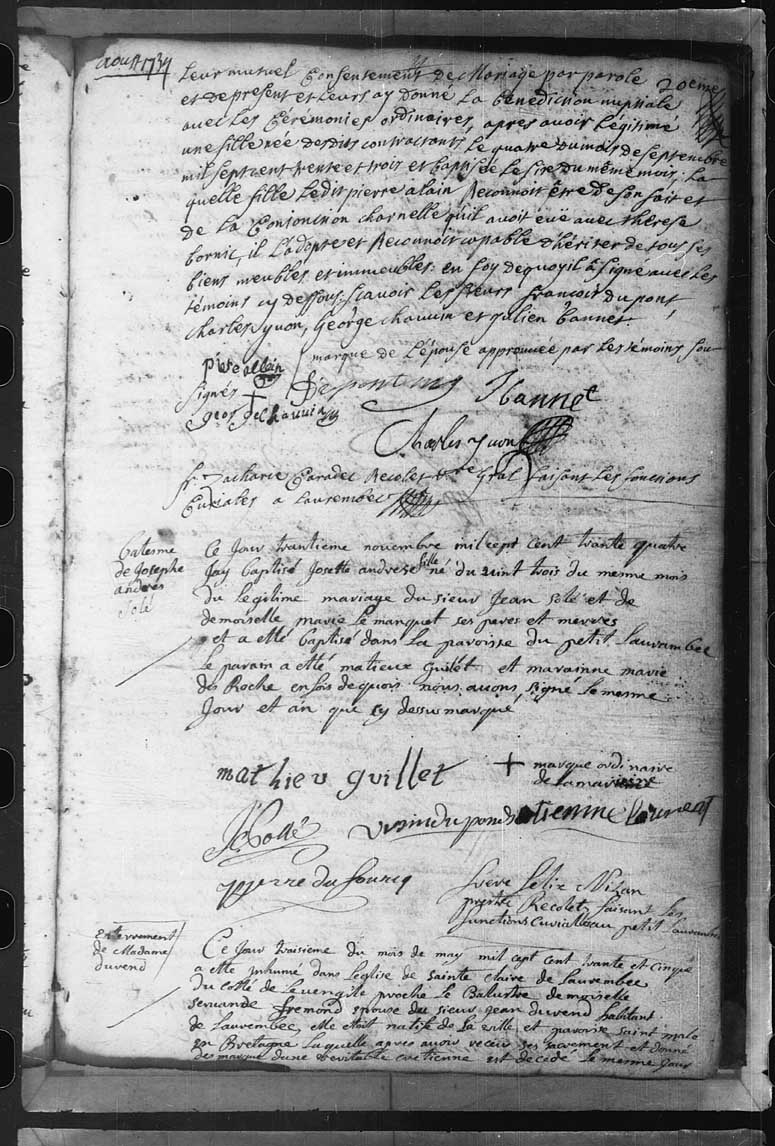 Aout 1734
20eme
Leur mutuel Consentement de Mariage par parole
et de present et Leurs ay Donné La benediction nuptiale
avec Les Cérémonies ordinaires, apres avoir Légitimé
une fille née desdits contractants Le quatre du mois de septembre
mil sept cent trente et trois et baptisée Le six du même mois. La
quelle fille Ledit pierre alain Reconnoit être de son fait et
de La Conjonction charnelle qu'il avoit eüe avec thérese
bornic, il L'adopte et Reconnoit capable d'hériter de tous ses
biens meubles et immeubles. en foy de quoy il à signé avec Les
témoins cy dessous. scavoir Les sieurs françois du pont,
Charles yvon, George chauvin et Julien bannet.
marque de L'épouse approuvée par Les témoins sou
piere allain
signés +
geor ge chauvin
Dupont
J bannet
Charles yvon
fr. Zacharie Caradec Recolet faisant Les fonctions
Curiales a Laurembec
batesme
de Josephe
andrés
Solé
Ce Jour trantieme novembre mil cept cent trante quatre
Jay baptisé Josette andrese fille né du vint trois du mesme mois
du legitime mariage du sieur Jean solé et de
demoiselle marie Le manquet ses peres et merres
et a etté baptisé dans La paroisse du petit Laurambec
Le parain a etté matieux guilet et marainne marie
des Roche en fois de quois nous avons signé Le mesme
Jour et an que cy dessus marqué
mathieu guillet
+ marque ordinaire
de la maraine
J Sollé
pierre du fourcq
frere felix Nizan
prestre Recolet faisant Les
functions Curialle au petit Lauranbec
Enterrement
de Madame
duvend
Ce Jour troisieme du mois de may mil cept cent trante et cinque
a ette inhume dans leglise de sainte claire de Laurembec
du Cotté de Levengile proche Le Balustre demoiselle
servande fremond epouse du sieur jean duvend habitant
de Laurembec, elle etoit natife de La ville et paroisse saint malo
en Bretagne Laquelle apres avoir receu ses sacrement et donné
des marque dune veritable cretienne est decedé Le mesme jour